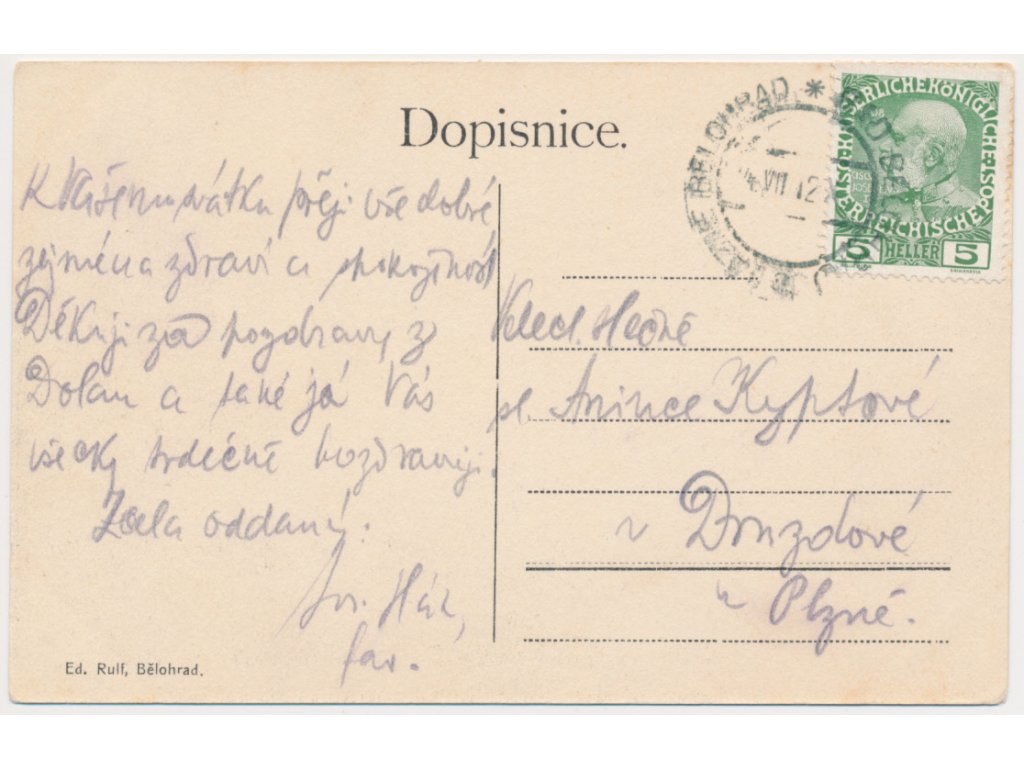 Dopisnice.
K Vašemu svátku přeji vše dobré
zejména zdraví a spokojenost
Děkuji za pozdravy z
Dolan a také já Vás
všecky srdečně pozdravuji.
Zcela oddaný.
Jos. Hák,
far.
Ed. Rulf, Bělohrad.
LÁZNĚ BĚLOHRAD * BAD
24.VII.12
KAISERLICHE KÖNIGLICHE
ÖSTERREICHISCHE POST
5 HELLER 5
Velect. slečně
sl. Anince Kyptové
v Druzdové
u Plzně.